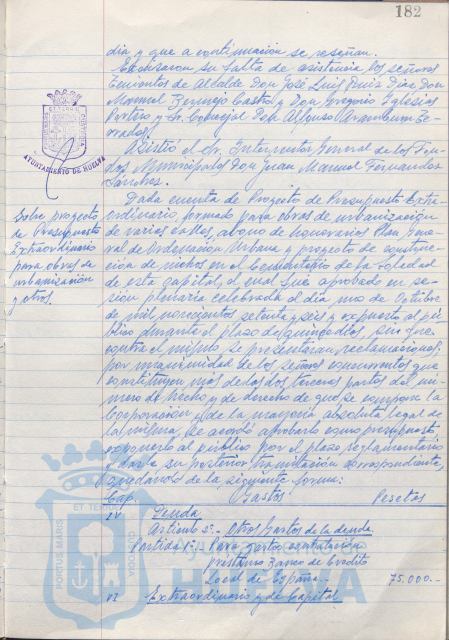 182
dia y que a continuación se reseñan.
Excusaron su falta de asistencia los señores
Tenientes de Alcalde Don José Luis Ruiz Díaz, Don
Manuel Bermejo Castro y Don Gregorio Iglesias
y Sr. Concejal Don Alfonso Aramburu
Asistió el Sr. Interventor General de los Fon-
dos Municipales Don Juan Manuel Fernandez
Sánchez.
AYUNTAMIENTO DE HUELVA
Sobre proyecto
de Presupuesto
Extraordinario
para obras de
urbanización
y otros.
Dada cuenta de Proyecto de Presupuesto Extra-
ordinario, formado para obras de urbanización
de varias calles, abono de honorarios Plan Gene-
ral de Ordenación Urbana y proyecto de construc-
ción de nichos en el Cementerio de la Soledad
de esta capital, el cual fue aprobado en se-
sion plenaria celebrada el dia uno de Octubre
de mil novecientos setenta y seis y expuesto al pú-
blico durante el plazo de quince dias, sin que
contra el mismo se presentaran reclamaciones,
por unanimidad de los señores concurrentes que
constituyen mas de las dos terceras partes del nú-
mero de hecho y de derecho de que se compone la
Corporación y de la mayoria absoluta legal de
la misma, se acordó aprobarlo como presupuesto
exponerlo al público por el plazo reglamentario
y darle su posterior tramitación correspondiente,
quedando de la siguiente forma:
Cap. Gastos Pesetas
IV Deuda
Articulo 5º.- Otros Gastos de la deuda
Partida 1ª.- Para gastos contratación
préstamo Banco de Crédito
Local de España.- 75.000.-
VI Extraordinario y de Capital
ET TERRAE
PORTUS MARIS
CUSTODIA
HUELVA